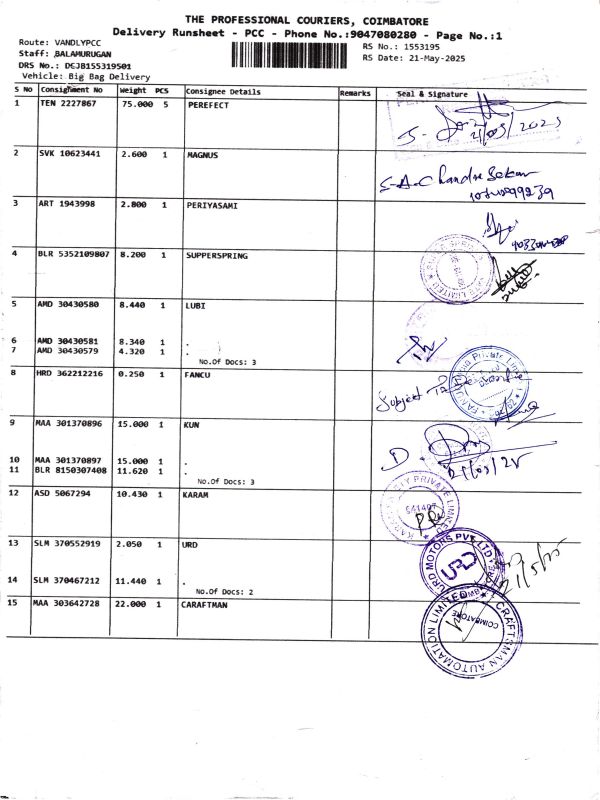 THE PROFESSIONAL COURIERS, COIMBATORE
Delivery Runsheet - PCC - Phone No.:9047080280 - Page No.:1
Route: VANDLYPCC
RS No.: 1553195
Staff: BALAMURUGAN
RS Date: 21-May-2025
DRS No.: DGJB155319501
Vehicle: Big Bag Delivery
S No Consignment No Weight PCS Consignee Details Remarks Seal & Signature
1 TEN 2227867 75.000 5 PEREFECT
21/05/2025
2 SVK 10623441 2.600 1 MAGNUS
S.A.C
3 ART 1943998 2.800 1 PERIYASAMI
4 BLR 5352109807 8.200 1 SUPPERSPRING
5 AMD 30430580 8.440 1 LUBI
6 AMD 30430581 8.340 1 .
7 AMD 30430579 4.320 1 .
No.Of Docs: 3
8 HRD 362212216 0.250 1 FANCU
Subject
9 MAA 301370896 15.000 1 KUN
10 MAA 301370897 15.000 1 .
11 BLR 8150307408 11.620 1 .
No.Of Docs: 3
21/05/25
12 ASD 5067294 10.430 1 KARAM
PRIVATE LIMITED
641407
13 SLM 370552919 2.050 1 URD
URD MOTORS PVT LTD
URD
21/5/25
14 SLM 370467212 11.440 1 .
No.Of Docs: 2
15 MAA 303642728 22.000 1 CARAFTMAN
CRAFTSMAN AUTOMATION LIMITED
COIMBATORE